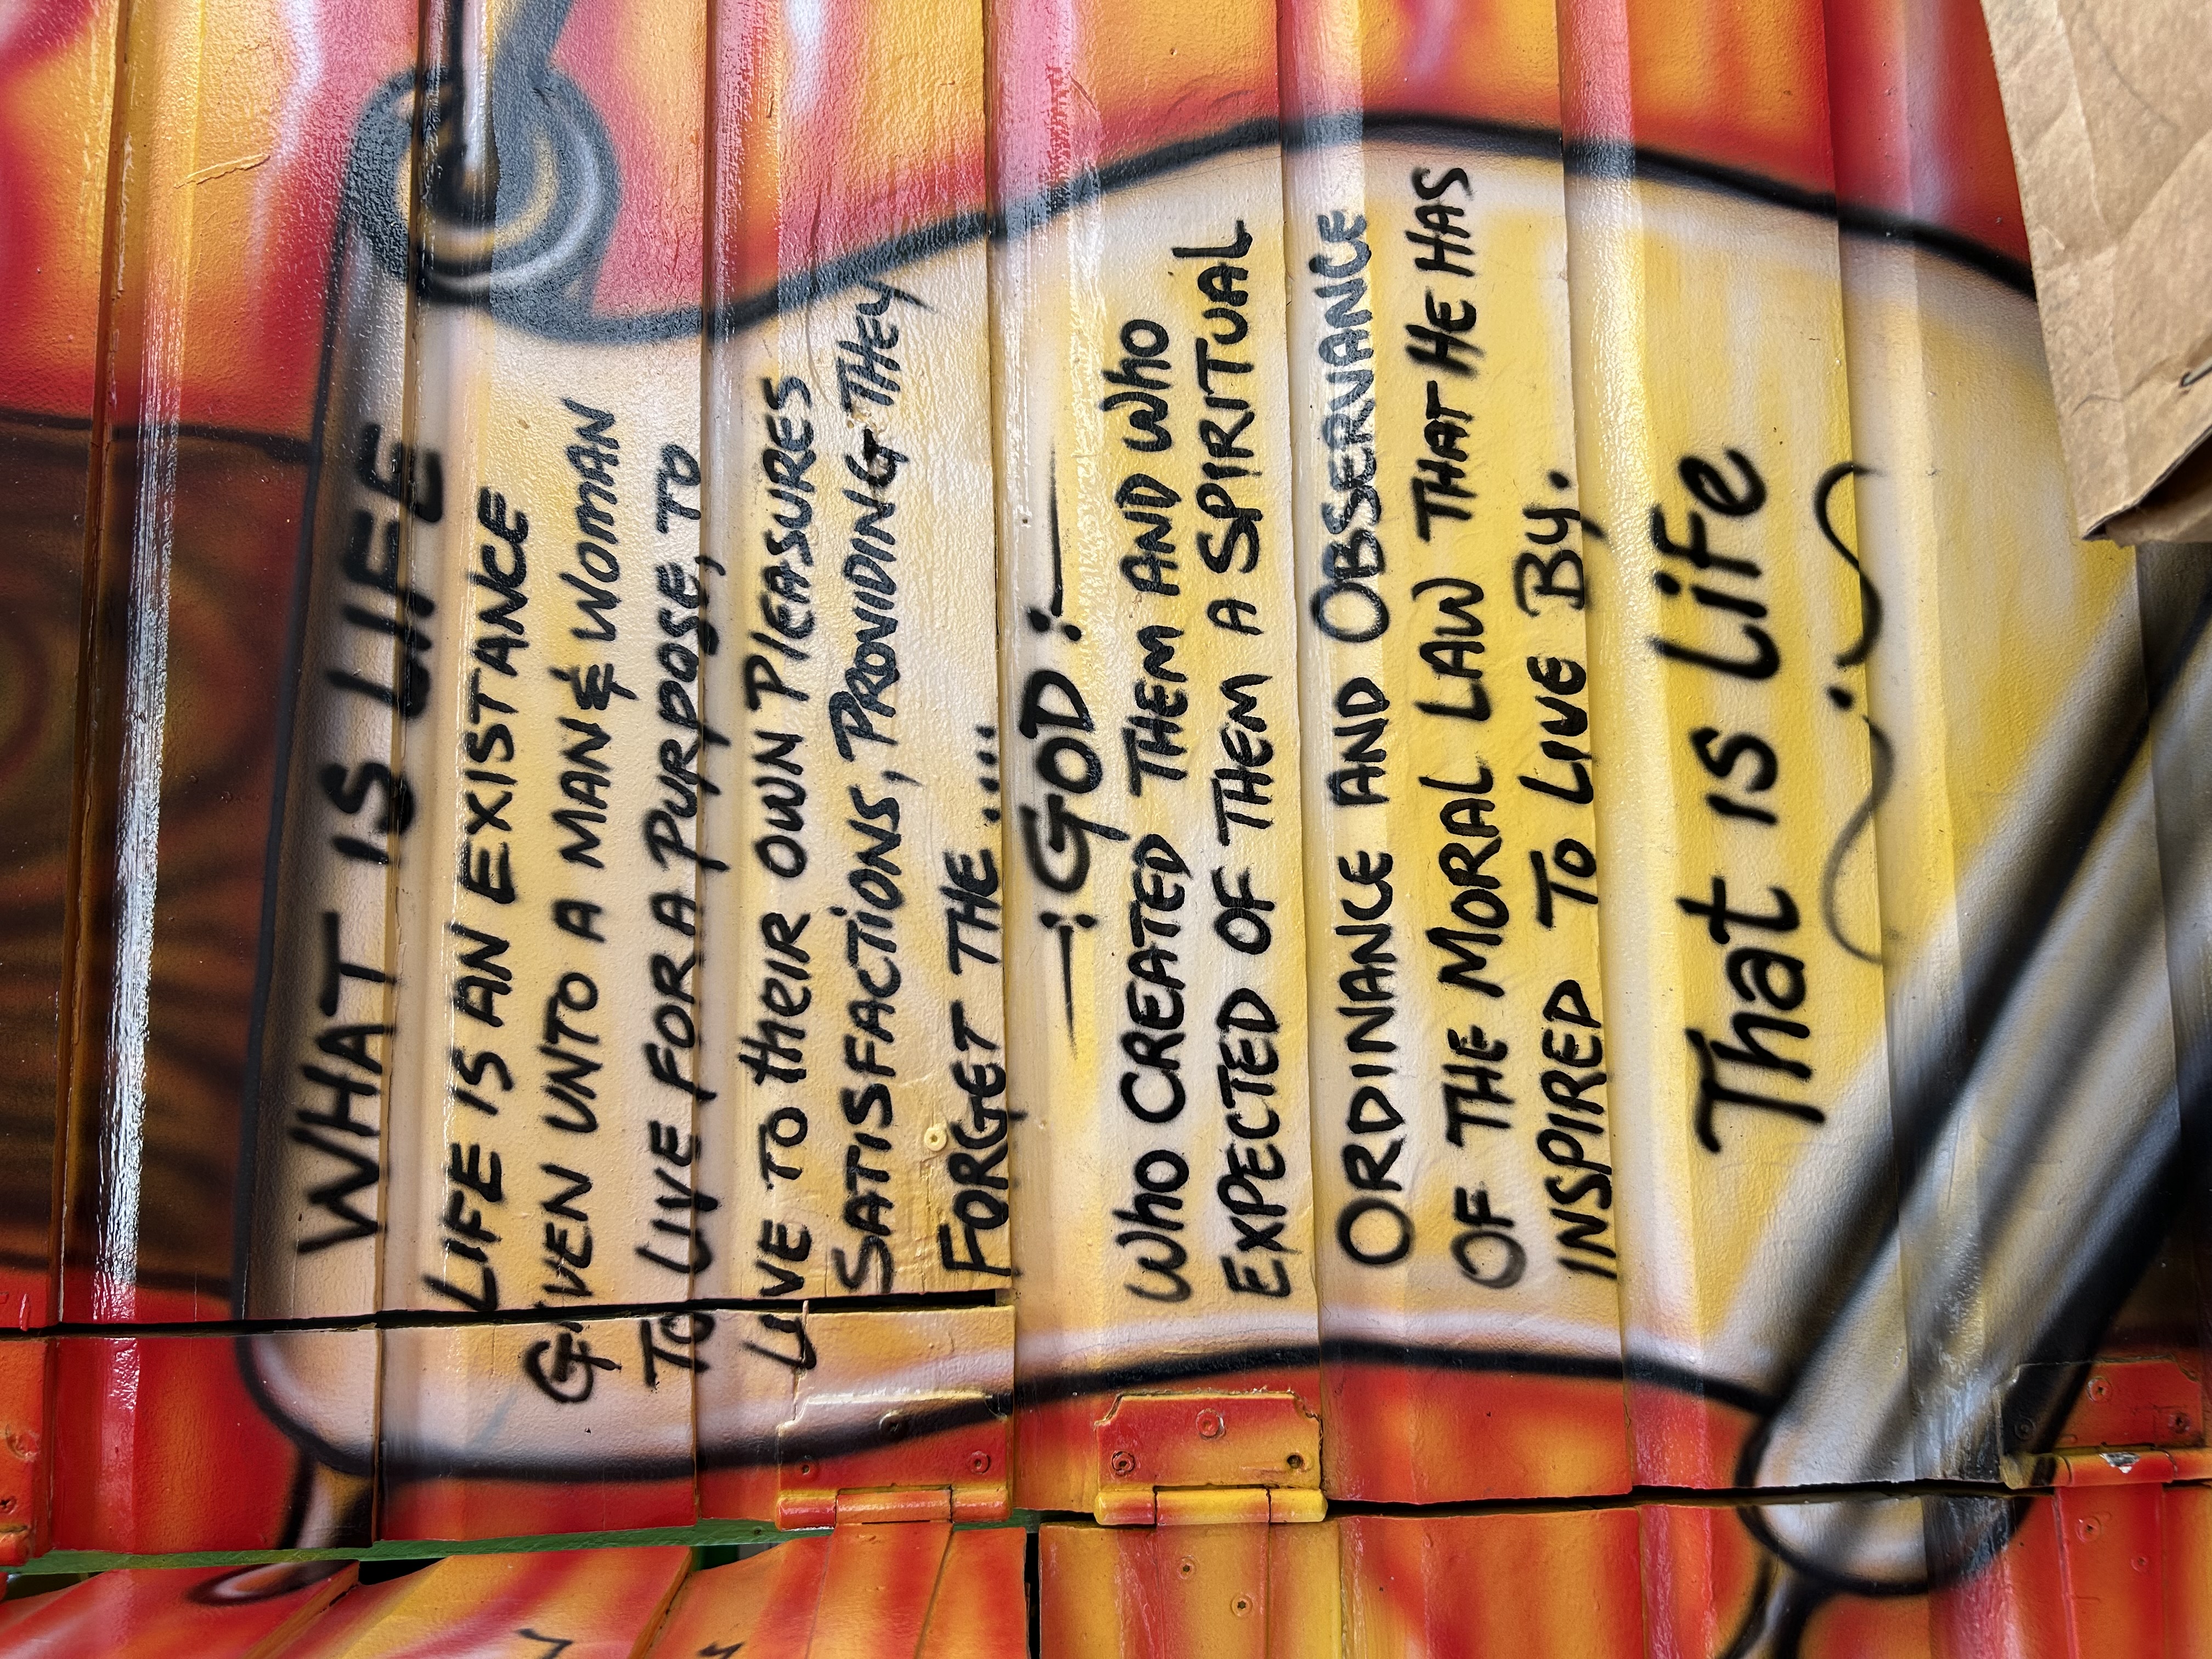 WHAT IS LIFE
LIFE IS AN EXISTANCE
GIVEN UNTO A MAN & WOMAN
TO LIVE FOR A PURPOSE, TO
LIVE TO theIR OWN PlEASURES
SATISFACTIONS, PROVIDING THEY
FORGET THE ....
—:GOD:—
WhO CREATED THEM AND WhO
EXPECTED OF THEM A SPIRITUAL
ORDINANCE AND OBSERVANCE
OF THE MORAL LAW THAT HE HAS
INSPIRED TO LIVE BY.
That is Life